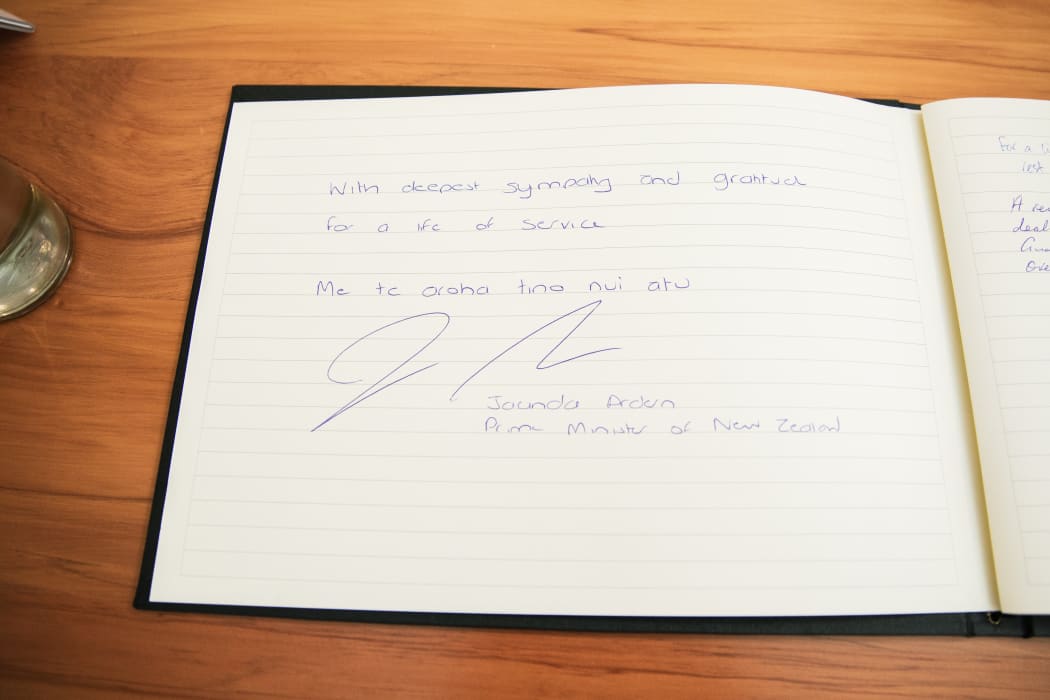 With deepest sympathy and gratitude
for a life of service
Me te aroha tino nui atu
Jacinda Ardern
Prime Minister of New Zealand
for a li
A
deal